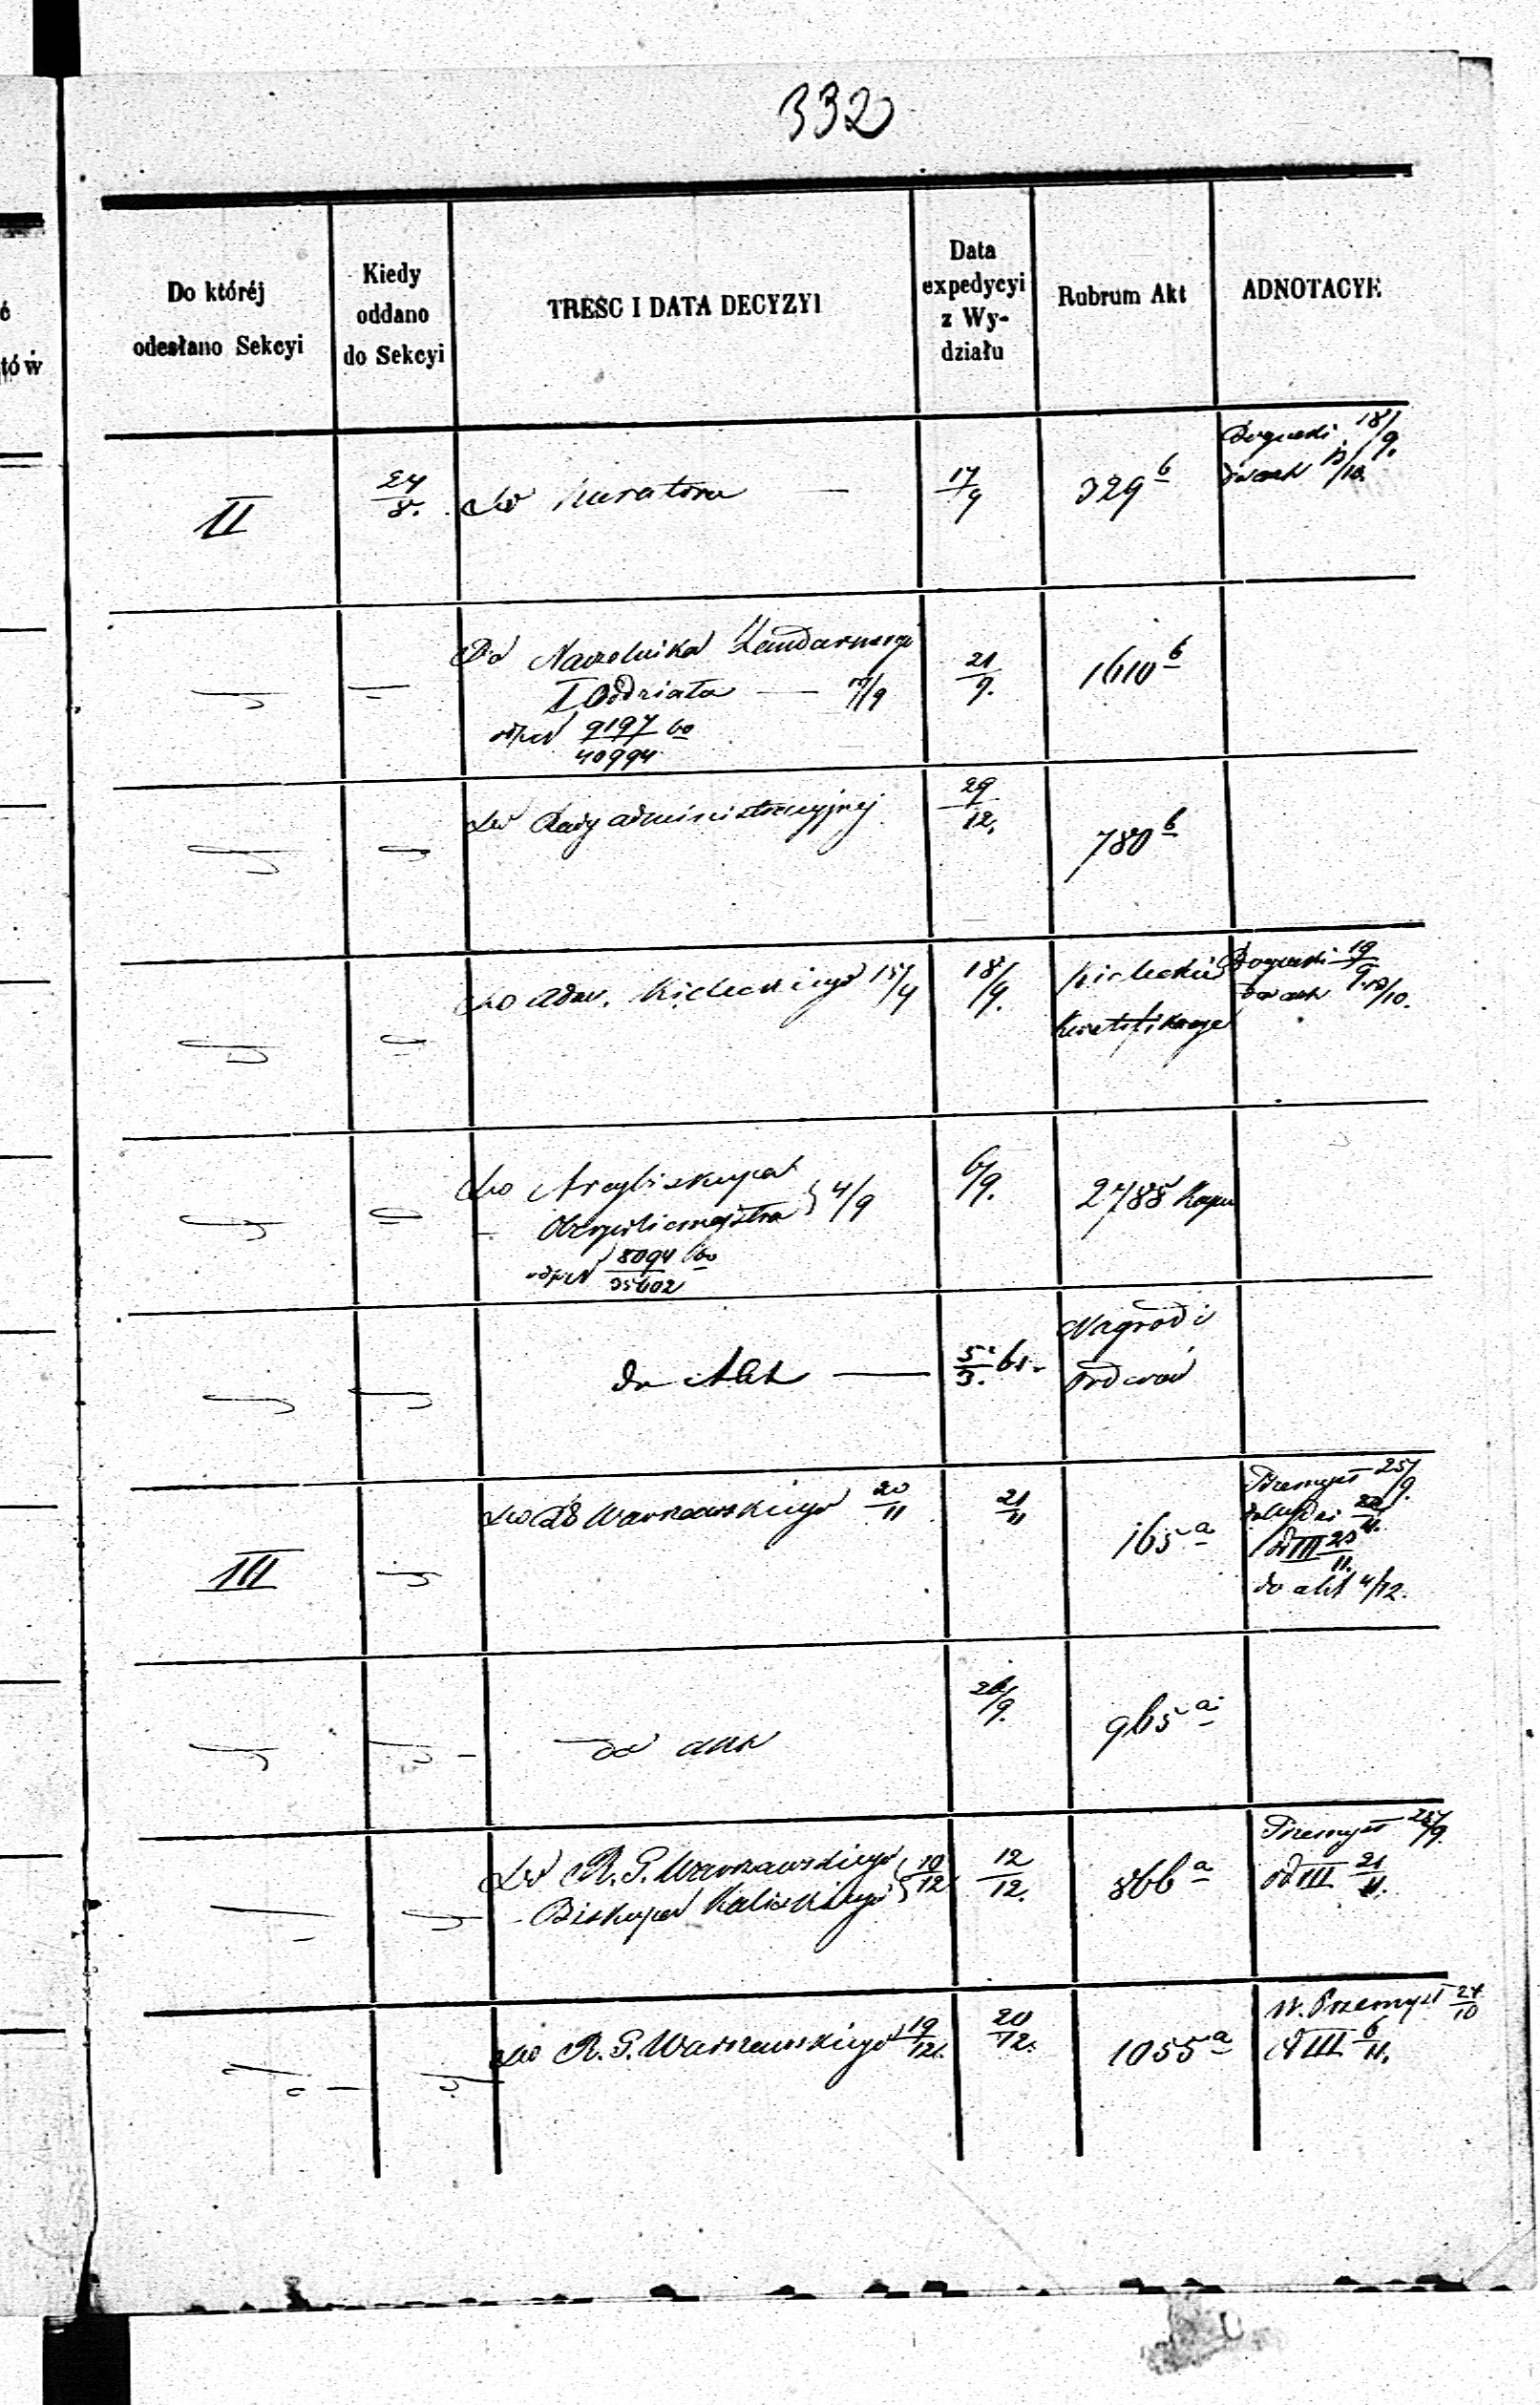 332
Do któréj
odesłano Sekcyi
Kiedy
oddano
do Sekcyi
TREŚC I DATA DECYZYI
Data
expedycyi
z Wy-
działu
Rubrum Akt
ADNOTACYE
II
24/8.
Do Kuratora —
17/9
329 b
18/9.
do akt /10.
Do Naczelnika Żandarmerji
I Oddziału — /9
odpis 9197/40994 60
21/9.
1610 b
Do Rady administracyjnej
29/12.
780 b
Do Adm. Kieleckiego 15/9
18/9.
Kieleckie
19/9.
do akt /10.
Do Arcybiskupa
- Oberpolicmajstra } 4/9
odpis 8094/35602 60
6/9.
2788
do Akt —
5/3. 61.
Nagrod i
III
Do Warszawskiego 20/11
21/11
165 a
Przemysł 25/9.
22/11.
od III 23/11.
do akt 4/12.
do akt
26/9.
965 a
Do R. G. Warszawskiego
- Biskupa Kaliskiego } 10/12
12/12.
866 a
Przemysł 25/9.
od III 21/11.
Do R. G. Warszawskiego 19/12.
20/12.
1055 a
W. Przemysł 24/10
od III 6/11.